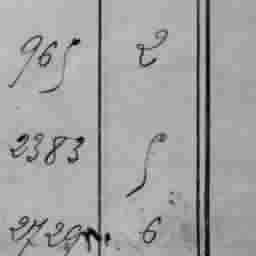 965 2
2383 5
2729 6